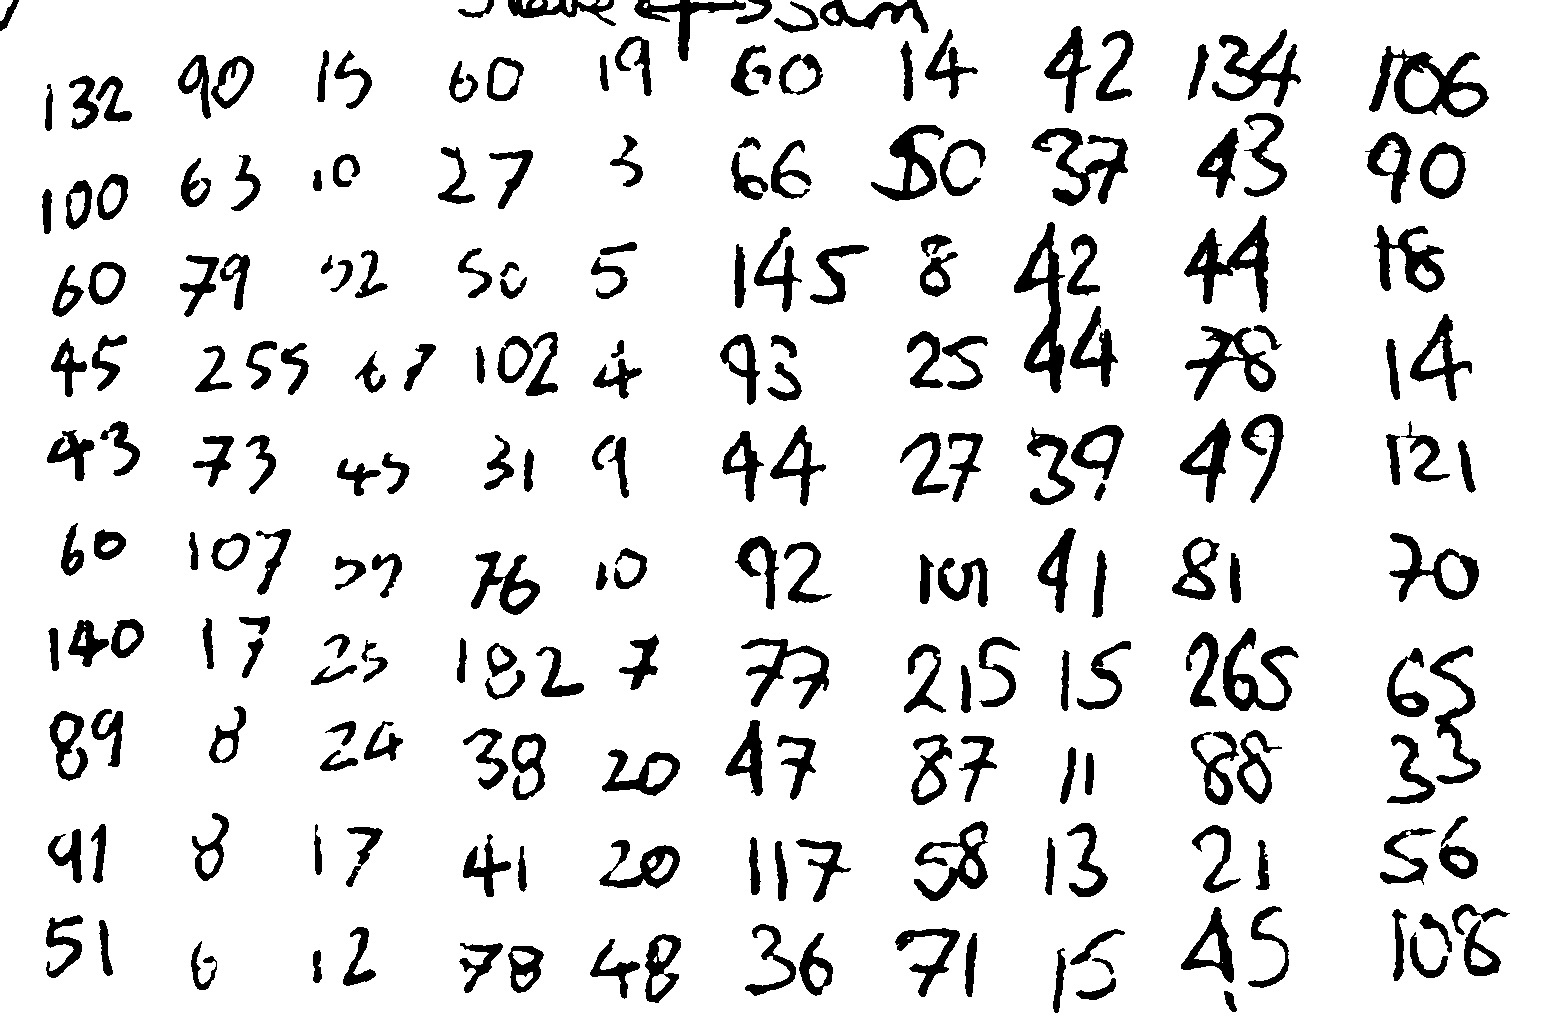 Sam
132 90 15 60 19 60 14 42 134 106
100 63 10 27 3 66 50 37 43 90
60 79 52 50 5 145 8 42 44 18
45 255 67 102 4 93 25 44 78 14
43 73 45 31 9 44 27 39 49 121
60 107 76 10 92 101 41 81 70
140 17 25 182 7 77 215 15 265 65
89 8 24 38 20 47 87 11 88 33
91 8 17 41 20 117 58 13 21 56
51 6 12 78 48 36 71 15 45 108